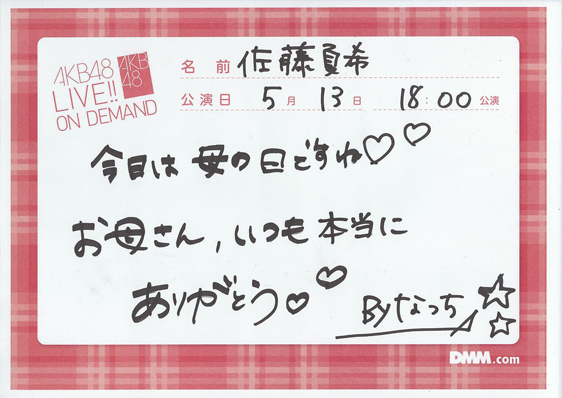 AKB48
LIVE!!
ON DEMAND
AKB
48
名前 佐藤夏希
公演日 5月 13日 18:00 公演
今日は母の日ですね♡♡
お母さん,いつも本当に
ありがとう♡♡
Byなっち☆☆
DMM.com